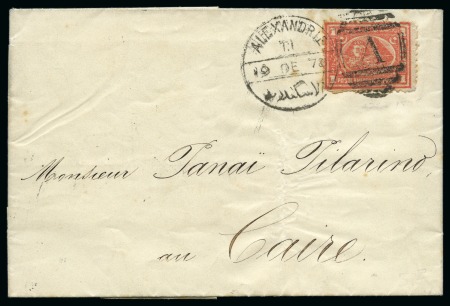 ALEXANDRIE
19 DE 7
1
Monsieur Panaï Pilarino,
au Caire.